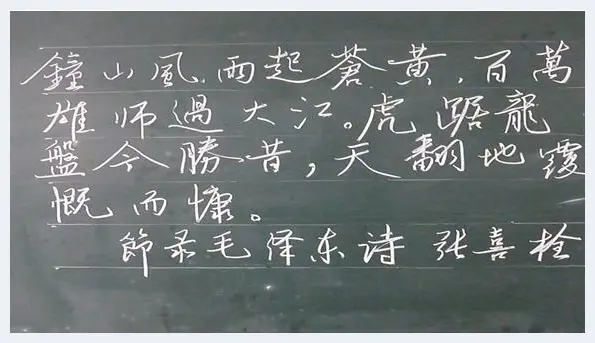 鐘山風雨起蒼黄,百萬
雄师過大江。虎踞龍
盤今勝昔,天翻地覆
慨而慷。
節录毛泽东诗 张喜栓